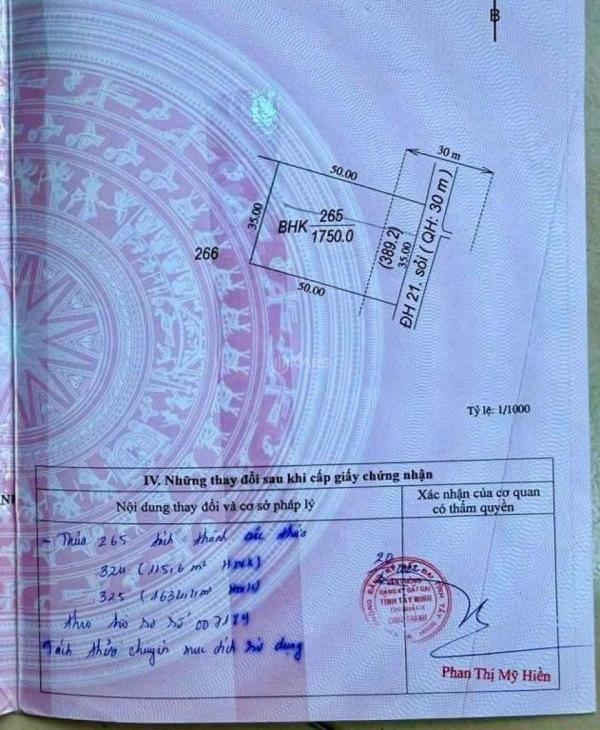 B
30 m
50.00
35.00
BHK 265
1750.0
(389.2)
35.00
ĐH 21. sỏi ( QH: 30 m )
266
50.00
Tỷ lệ: 1/1000
IV. Những thay đổi sau khi cấp giấy chứng nhận
Nội dung thay đổi và cơ sở pháp lý
Xác nhận của cơ quan
có thẩm quyền
- Thửa 265 tách thành các thửa
324 (115,6 m²
325 (1634,4 m²
theo hồ sơ số 007179
Tách thửa chuyển mục đích sử dụng
20
ĐĂNG KÝ ĐẤT ĐAI
TỈNH TÂY NINH
Phan Thị Mỹ Hiền